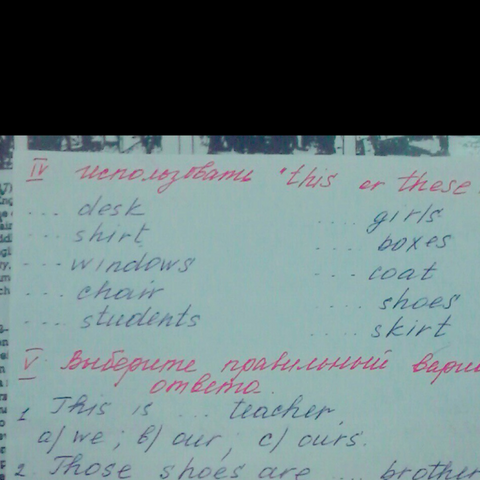 IV использовать "this or these
... desk .... girls
... shirt .... boxes
... windows .... coat
... chair .... shoes
... students .... skirt
V Выберите правильный вари
ответа.
1 This is ... teacher.
a) we ; b) our ; c) ours.
2. Those shoes are ... brother